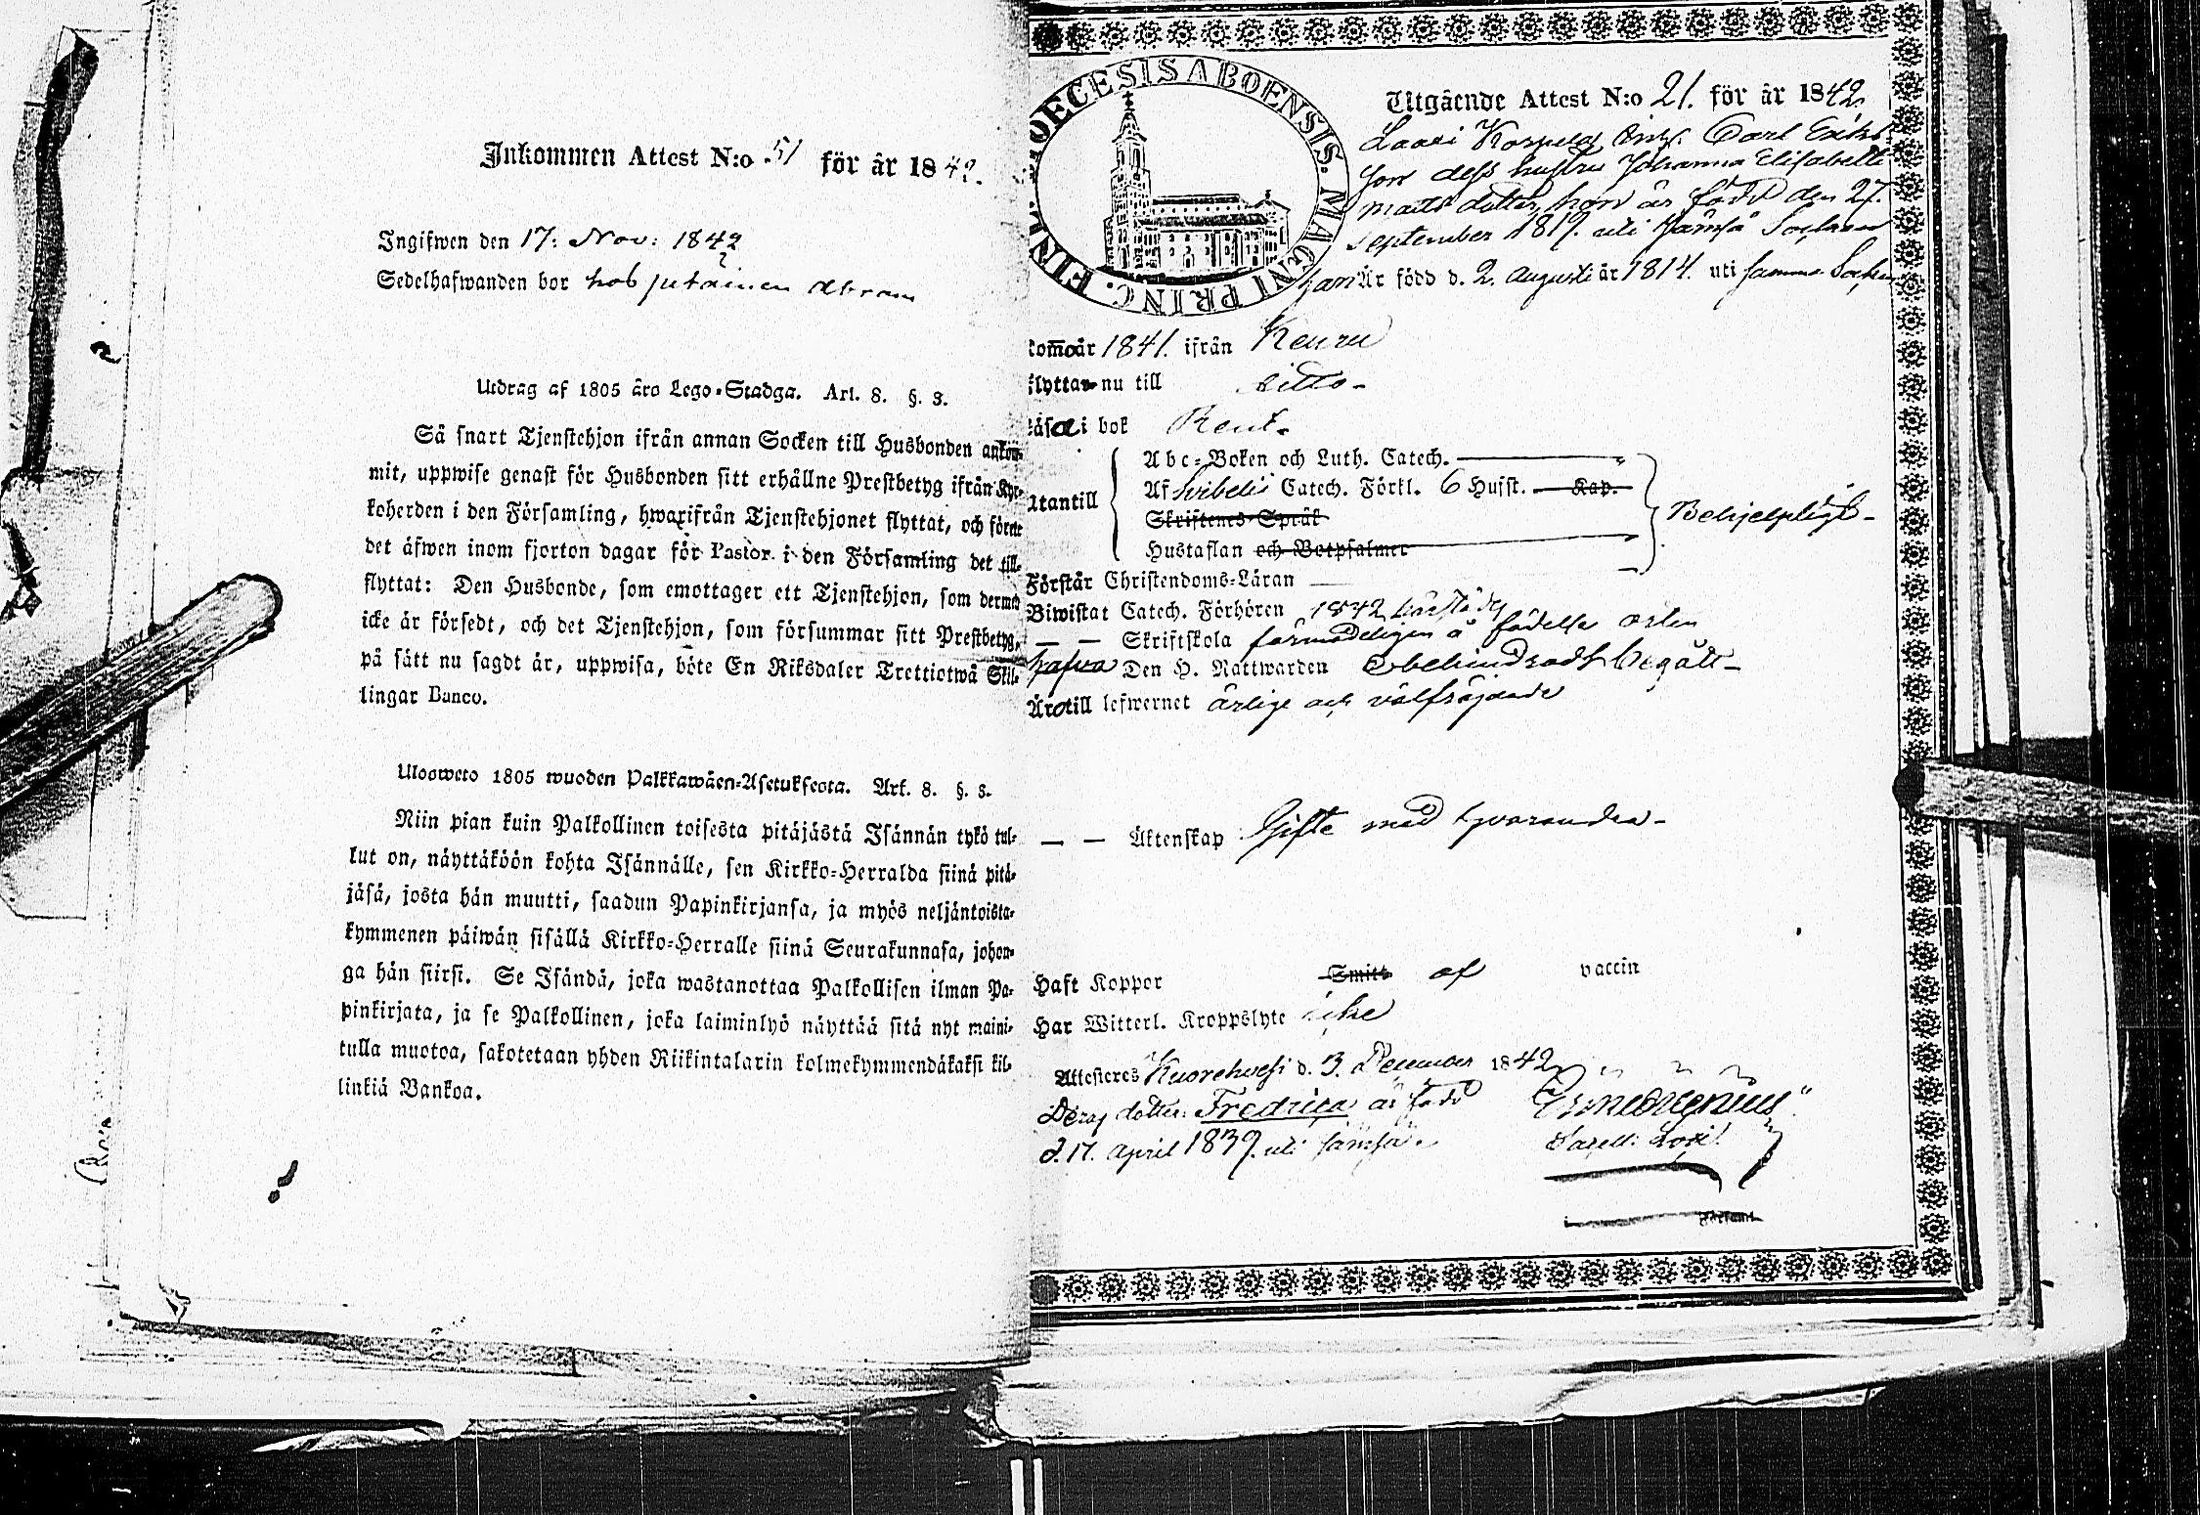 Inkommen Attest N:o 51 för år 1842.
Ingifwen den 17: Nov: 1842
Sedelhafwanden bor hos jutainen Abram
Utdrag af 1805 års Lego-Stadga. Art. 8. §. 8.
Så snart Tjenstehjon ifrån annan Socken till Husbonden ankom-
mit, uppwise genast för Husbonden sitt erhållne Prestbetyg ifrån Kyr-
koherden i den Församling, hwarifrån Tjenstehjonet flyttat, och förete
det äfwen inom fjorton dagar för Pastor i den Församling det till-
flyttat: Den Husbonde, som emottager ett Tjenstehjon, som dermed
icke är försedt, och det Tjenstehjon, som försummar sitt Prestbetyg,
på sätt nu sagdt är, uppwisa, böte En Riksdaler Trettiotwå Skil-
lingar Banco.
Ulosweto 1805 wuoden Palkkawäen-Asetuksesta. Art. 8. §. 8.
Niin pian kuin Palkollinen toisesta pitäjästä Isännän tykö tul-
lut on, näyttäköön kohta Isännälle, sen Kirkko-Herralda siinä pitä-
jäsä, josta hän muutti, saadun Papinkirjansa, ja myös neljäntoista-
kymmenen päiwän sisällä Kirkko-Herralle siinä Seurakunnasa, johon-
ga hän siirsi. Se Isändä, joka wastanottaa Palkollisen ilman Pa-
pinkirjata, ja se Palkollinen, joka laiminlyö näyttää sitä nyt maini-
tulla muotoa, sakotetaan yhden Riikintalarin kolmekymmendäkaksi kil-
linkiä Bankoa.
DIOECESIS ABOENSIS. MAGNI PRINC. FINL.
Utgående Attest N:o 21. för år 1842.
Carl Eriks-
son dess hustru Johanna Elisabeth
matts dotter, hon är född den 27.
September 1819. uti Jämsä Sochen
han Är född d. 2. augusti år 1814. uti samma Sochen
kommo år 1841. ifrån Keuru
flytta nu till ditto-
läsa i bok Rent.
Abc-Boken och Luth. Catech.
utantill Af Svibelii Catech. Förkl. 6 Hufst. Kap.
Skriftenes Språk
Behjelpligt-
Hustaflan och Botpsalmer
Förstår Christendoms-Läran
Biwistat Catech. Förhören 1842 härstädes
— — Skriftskola förmodeligen å födelse orten
hafva Den H. Nattwarden obehindradt begått-
Äro till lefwernet ärlige och välfräjdade
— — Äktenskap Gifte med hvarandra-
Haft Koppor Smitt af vaccin
Har Witterl. Kroppslyte icke
Attesteres Kuorehvesi d. 3. December 1842
Deras dotter: Fredrica är född
d. 17. april 1839. uti Jämsä.